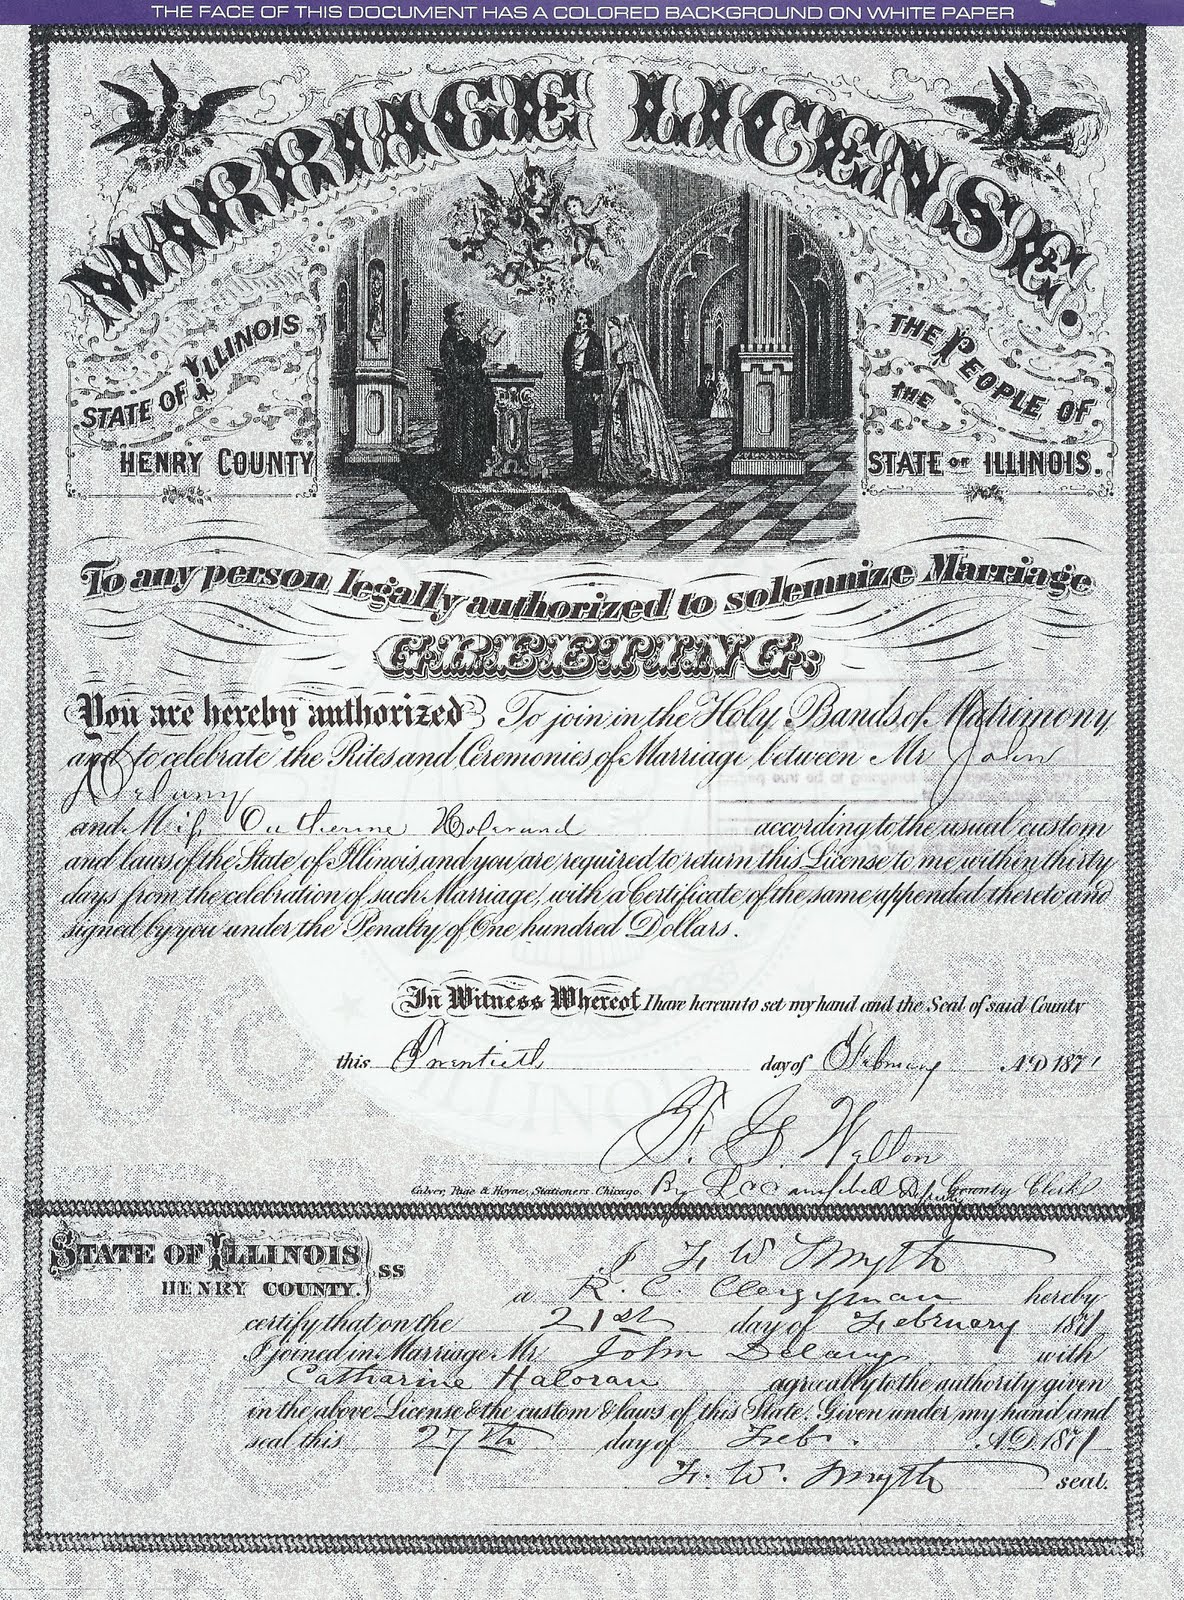 THE FACE OF THIS DOCUMENT HAS A COLORED BACKGROUND ON WHITE PAPER
MARRIAGE LICENSE.
STATE OF ILLINOIS
HENRY COUNTY
THE PEOPLE OF
THE
STATE OF ILLINOIS.
To any person legally authorized to solemnize Marriage
GREETING:
You are hereby authorized To join in the Holy Bands of Matrimony
and to celebrate the Rites and Ceremonies of Marriage, between Mr John
Delany
and Miss Catherine according to the usual custom
and laws of the State of Illinois, and you are required to return this License to me within thirty
days from the celebration of such Marriage, with a Certificate of the same appended thereto and
signed by you under the Penalty of One hundred Dollars.
In Witness Whereof, I have hereunto set my hand and the Seal of said County
this Twentieth day of February A.D 1871
Walton
Culver, Page & Hoyne, Stationers. Chicago. By Campbell Deputy County Clerk
STATE OF ILLINOIS
HENRY COUNTY. } SS
I F. W Smyth
a R. C. Clergyman hereby
certify that on the 21st day of February 1871
I joined in Marriage Mr John Delany with
Catharine Haloran agreeably to the authority given
in the above License & the custom & laws of this State. Given under my hand and
seal this 27th day of Feb. A.D. 1871
F. W. Smyth seal.